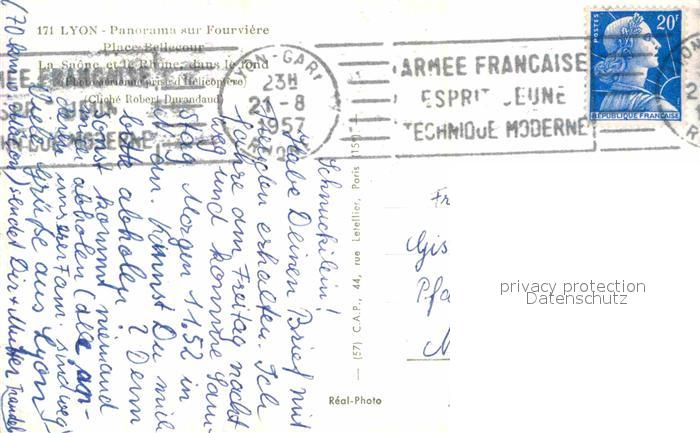 171 LYON - Panorama sur Fourvière
Place Bellecour
La Saône et le Rhône, dans le fond
(Photo aérienne prise d'Hélicoptère)
(Cliché Robert Durandaud)
LYON-GARE
23H
21-8
1957
RHÔNE
ARMEE FRANCAISE
ESPRIT JEUNE
TECHNIQUE MODERNE
POSTES
20F
REPUBLIQUE FRANÇAISE
Schnuckilein!
Habe Deinen Brief mit
erhalten. Ich
fahre am Freitag nacht
und komme Sam-
stag Morgen 11.52 in
an. Kannst Du mich
bitte abholen? Denn
sonst kommt niemand
abholen (die
unserer Fam. sind weg)
Viele Grüße aus Lyon
sendet Dir + Mutter
(57) C.A.P., 44, rue Letellier, Paris (15e)
Réal-Photo
Fr
Gis
Pfa
N
privacy protection
Datenschutz